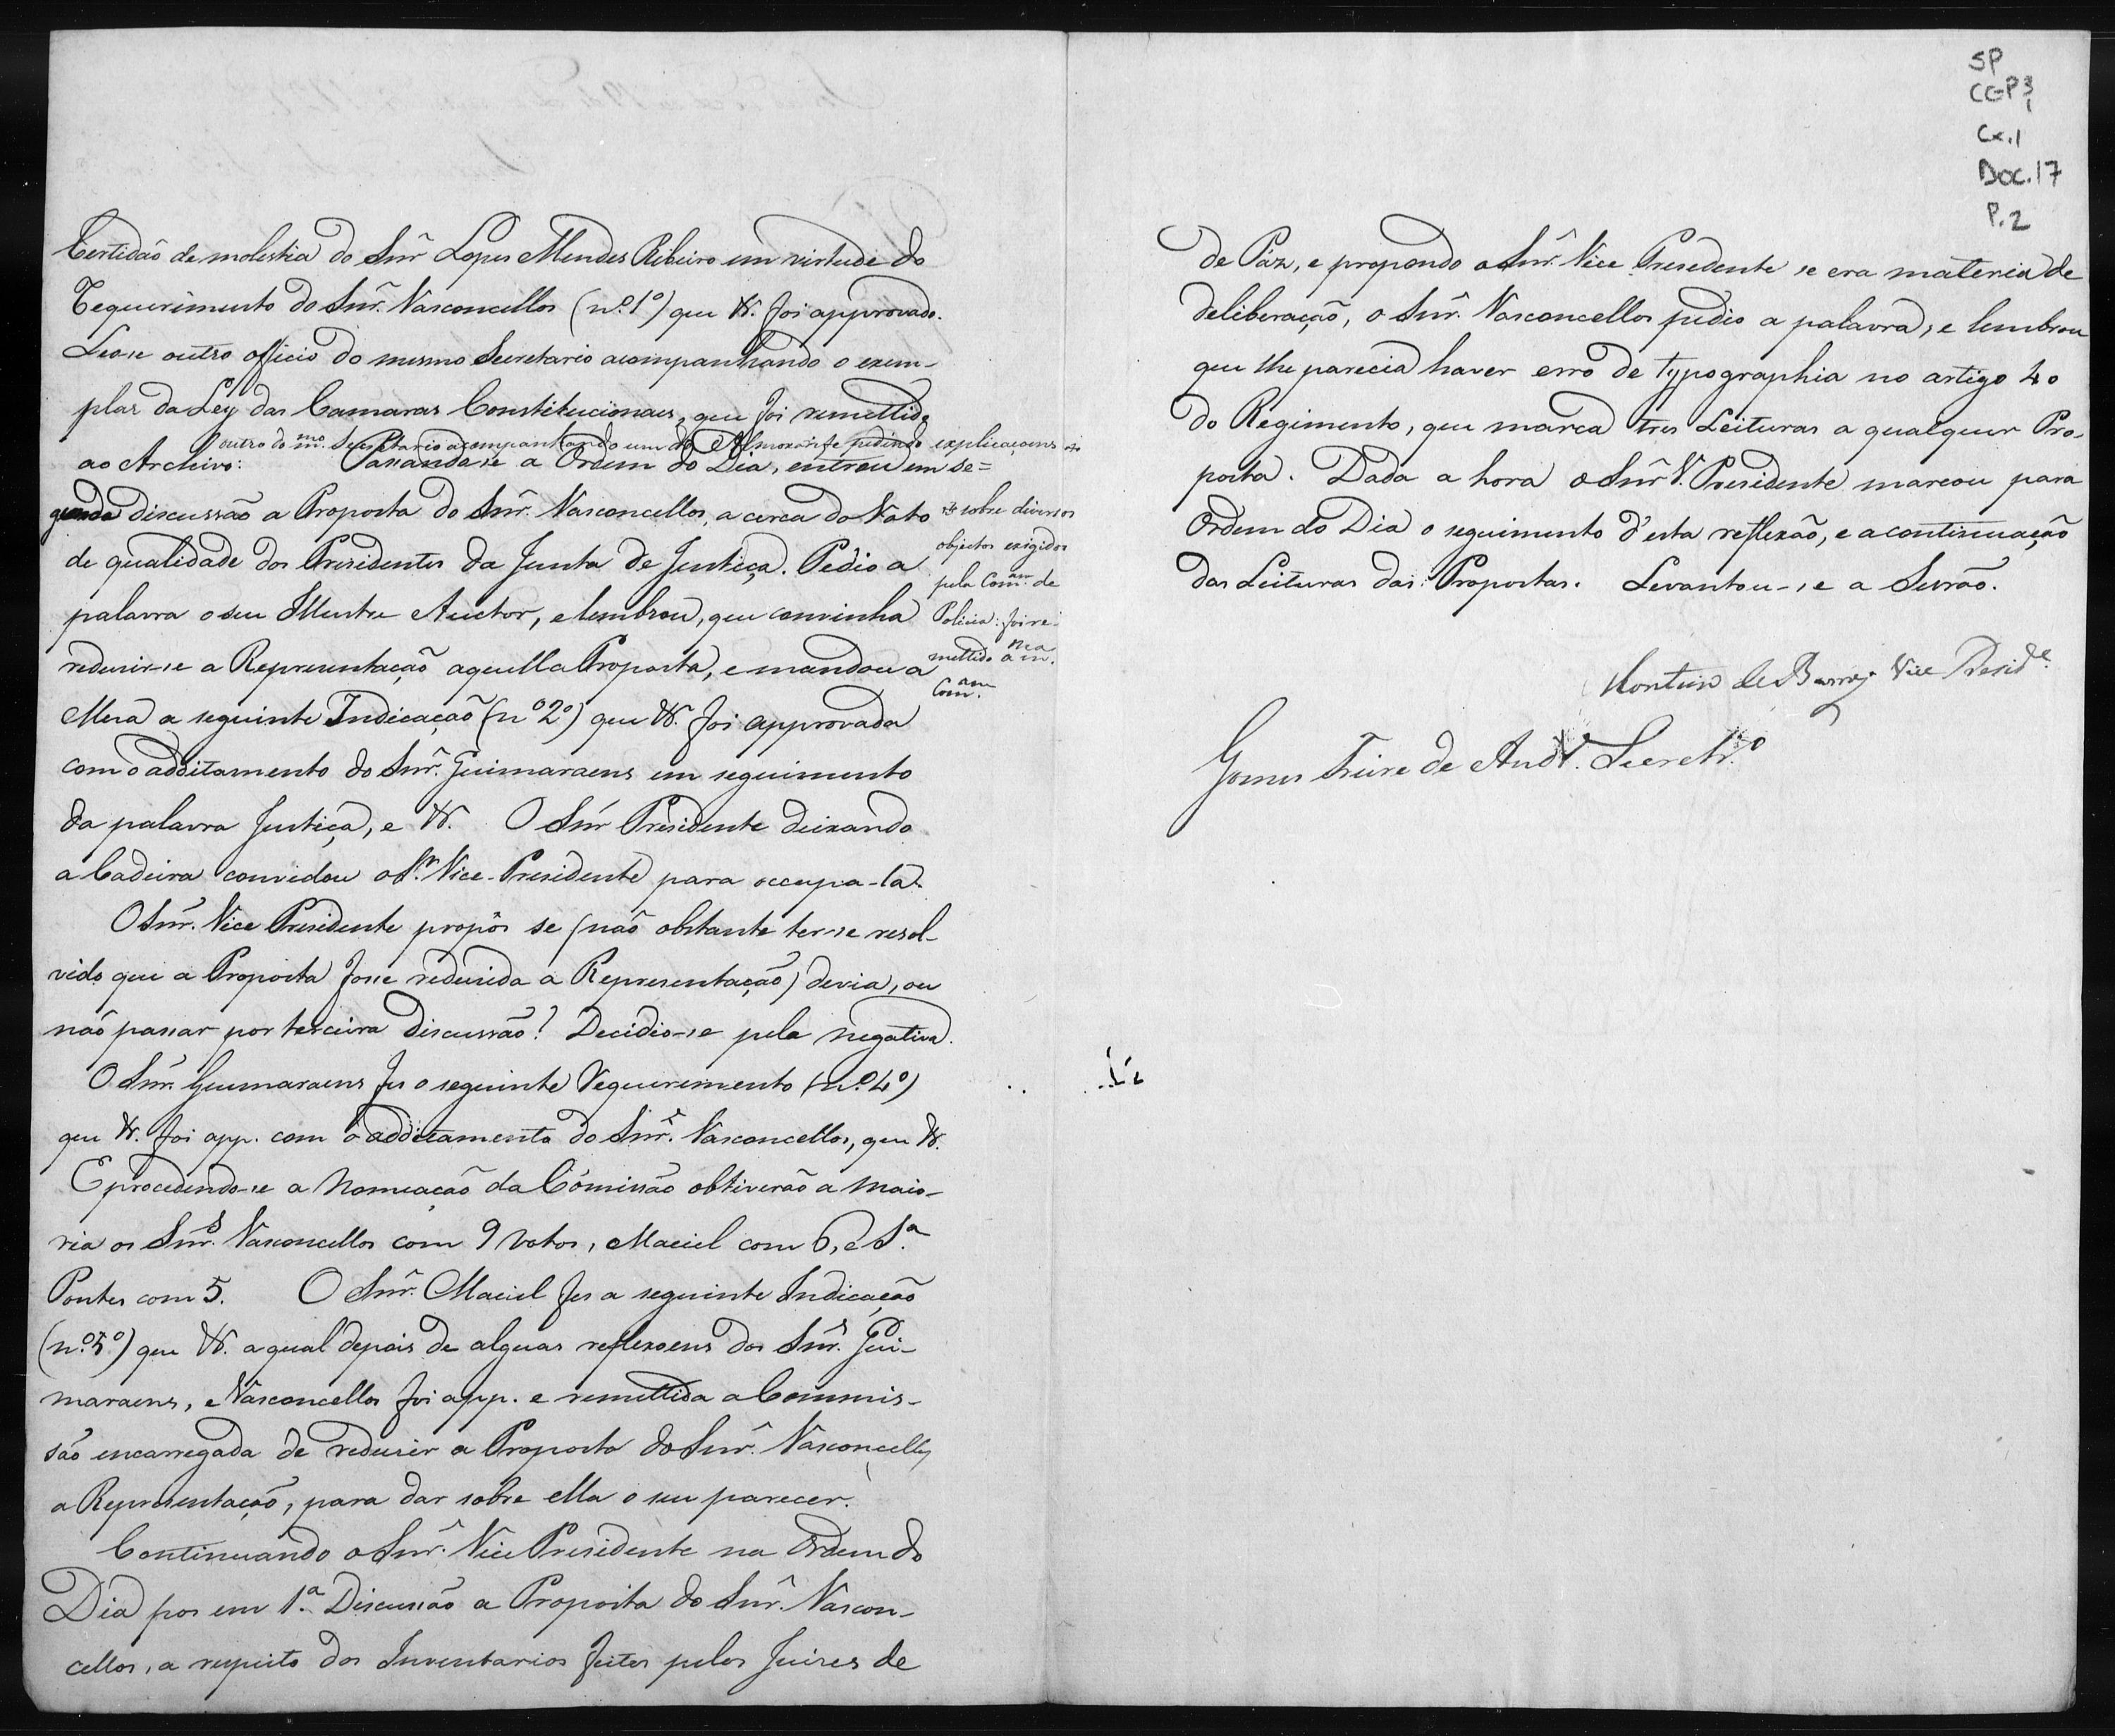 Certidão de molestia do Snr̃ Lopes Mendes Ribeiro em virtude do
Requerimento do Snr̃. Vasconcellos (nº. 1º) que V. foi approvado.
Leo-se outro officio do mesmo Secretario acompanhando o exem-
plar da Ley das Camaras Constitucionaes, que foi remettido
outro do mmo. Secretario acompanhando um do Almoxarife pedindo explicaçoens
ao Archivo: Passando-se a Ordem do Dia, entrou em se=
gunda discussão a Proposta do Snr̃. Vasconcellos, a cerca do Voto
de qualidade dos Presidentes da Junta de Justiça. Pedio a
palavra o seu Illustre Auctor, e lembrou, que convinha
redusir-se a Representação aquella Proposta, e mandou a
Mesa a seguinte Indicação (nº 2º) que V. foi approvada
com o additamento do Snr̃. Guimaraens em seguimento
da palavra Justiça, e V. O Snr̃ Presidente deixando
a Cadeira convidou o Sr. Vice-Presidente para occupa-la.
sobre diversos
objectos exigidos
pela Comam. de
Policia: foi re-
mettido a mma.
Comam.
O Snr̃. Vice Presidente propôs se (não obstante ter-se resol-
vido que a Proposta fosse redusida a Representação) devia, ou
não passar por terceira discussão? Decidio-se pela negativa.
O Snr̃. Guimaraens fes o seguinte Requerimento (nº. 4º)
que V. foi app. com o additamento do Snr̃. Vasconcellos, que V.
E procedendo-se a Nomeação da Comissão obtiverão a maio-
ria os Snr̃s. Vasconcellos com 9 votos, Maciel com 6, e Sa.
Pontes com 5. O Snr̃. Maciel fes a seguinte Indicação
(nº. 5º) que V. a qual depois de alguas reflexoens dos Snr̃s. Gui-
maraens, e Vasconcellos foi app. e remettida a Commis-
são encarregada de redusir a Proposta do Snr̃. Vasconcellos
a Representação, para dar sobre ella o seu parecer.
Continuando o Snr̃. Vice Presidente na Ordem do
Dia pos em 1.ª Discussão a Proposta do Snr̃. Vascon-
cellos, a respeito dos Inventarios feitos pelos Juises de
SP
CGP3
1
Cx.1
Doc.17
P.2
de Páz, e propondo o Snr̃. Vice Presedente se era materia de
deliberação, o Snr̃. Vasconcellos pedio a palavra, e lembrou
que lhe parecia haver erro de typographia no artigo 40
do Regimento, que marca tres Leituras a qualquer Pro-
posta. Dada a hora o Snr̃ V. Presidente marcou para
Ordem do Dia o seguimento d'esta reflexão, e a continuação
das Leituras das Propostas. Levantou-se a Sessão.
Monteiro de Barros Vice Preside.
Gomes Freire de Andre. Secretro.